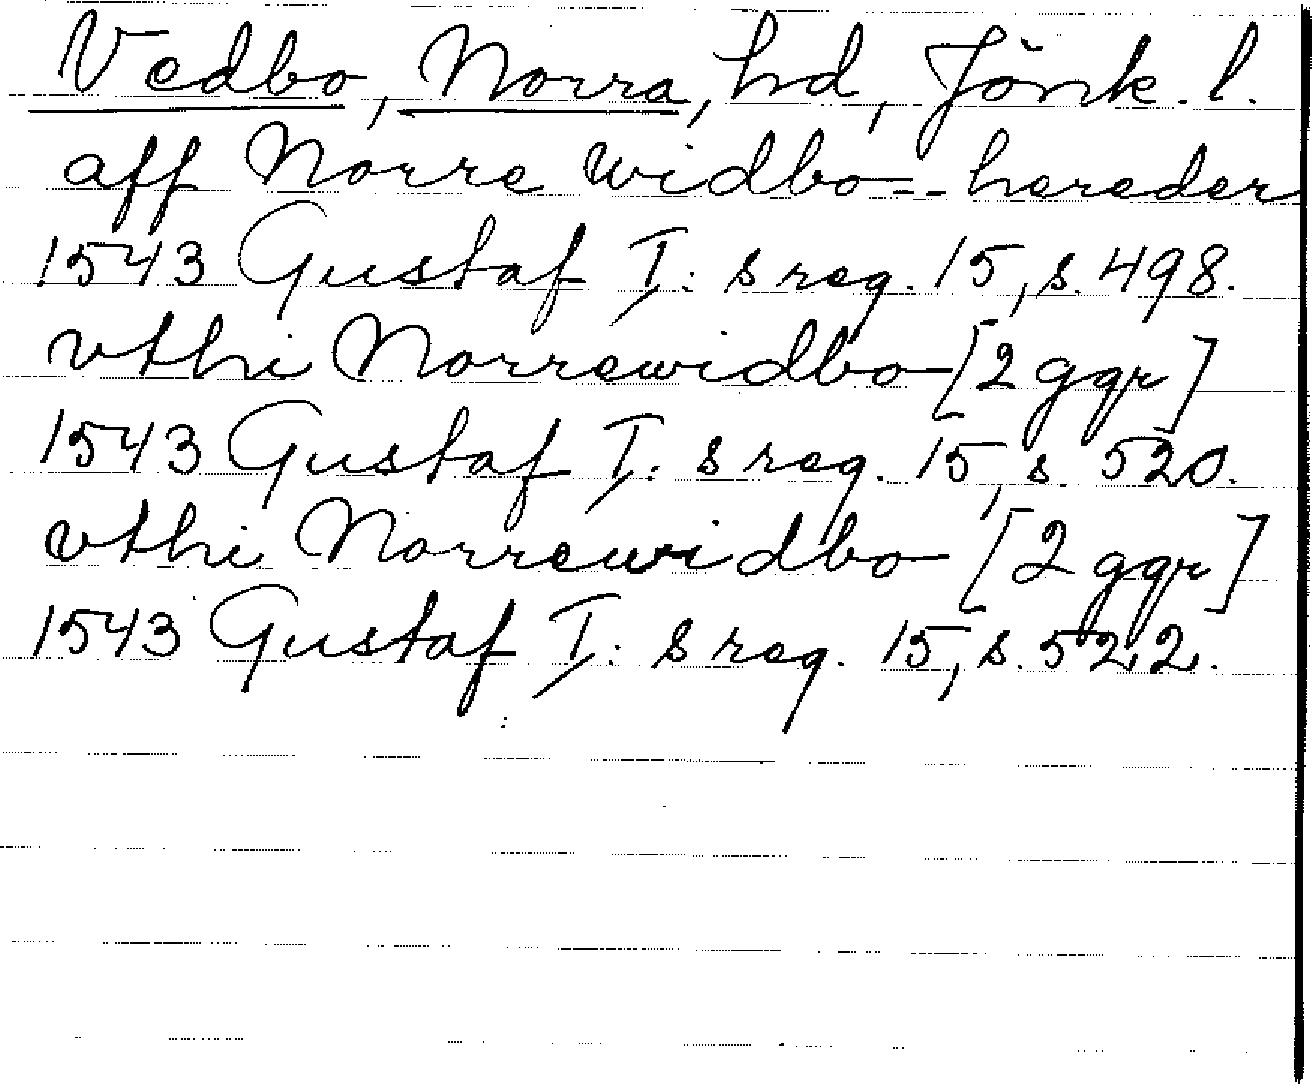 Vedbo, Norra, hd, Jönk. l.
aff Norre widbo -- hereder
1543 Gustaf I: s reg. 15, s. 498.
vthi Norrewidbo [2 ggr]
1543 Gustaf I: s reg. 15, s. 520.
vthi Norrewidbo [2 ggr]
1543 Gustaf I: s reg. 15, s. 522.